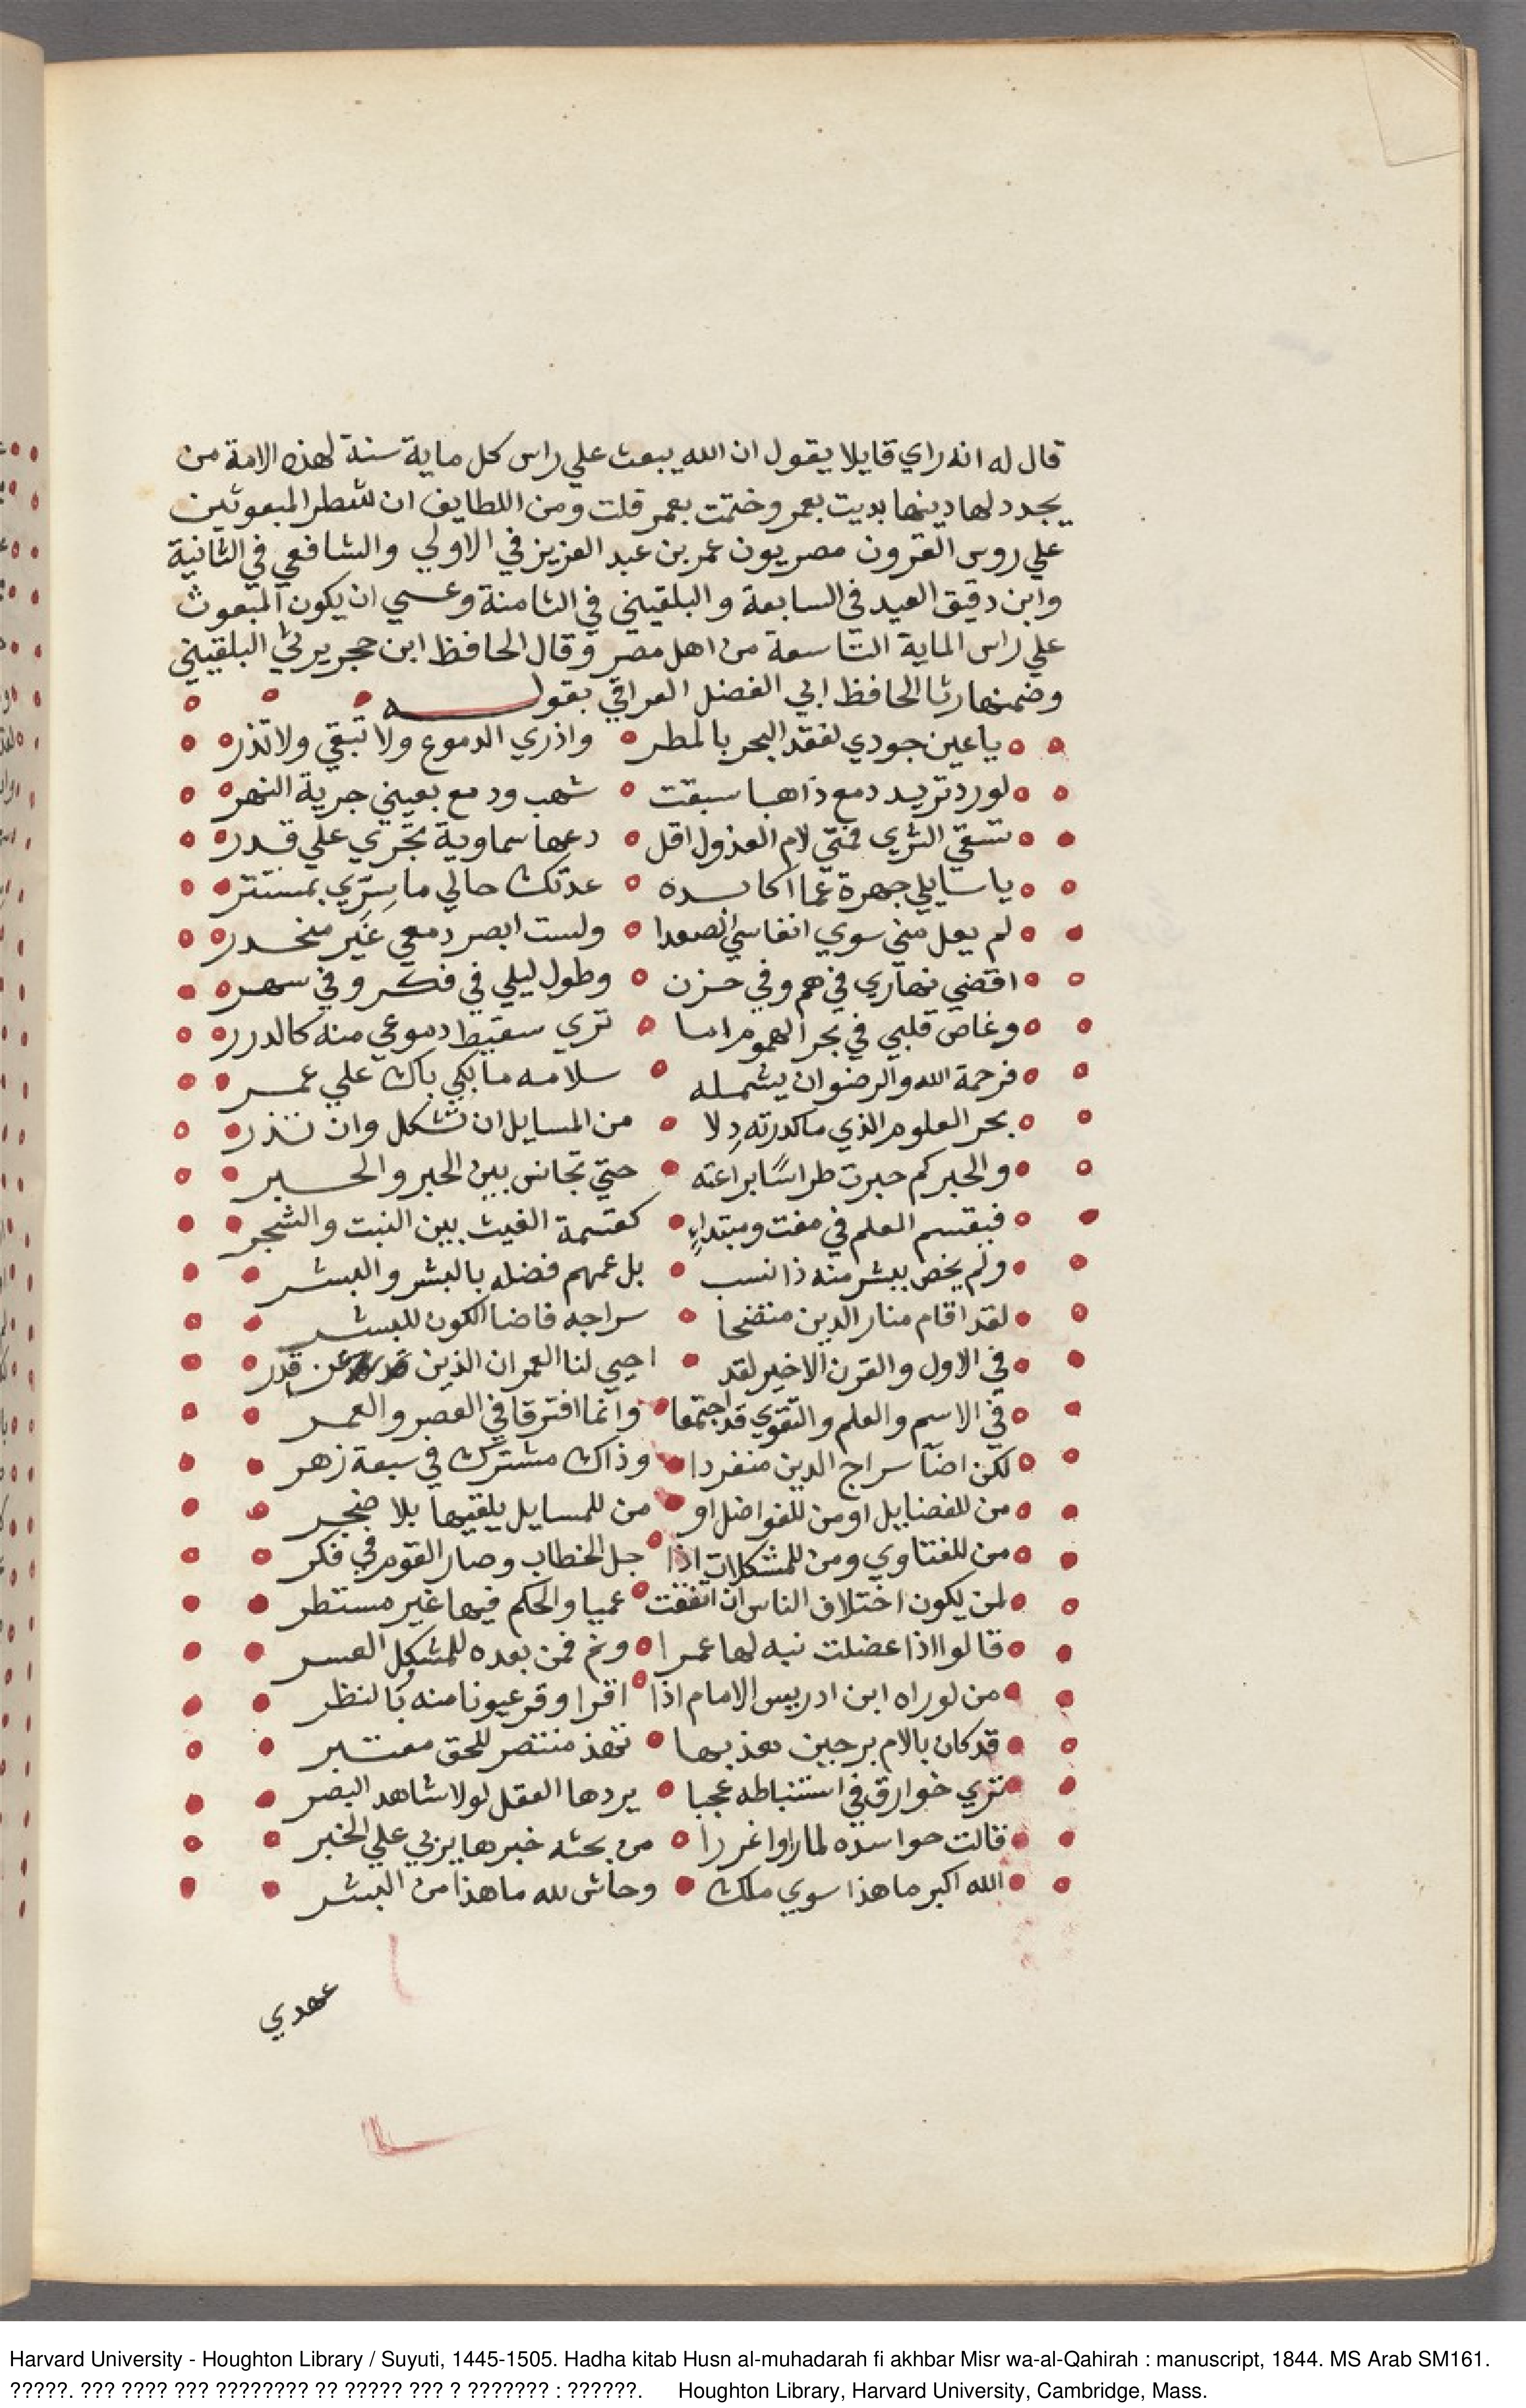 قال له انه راي قايلا يقول ان الله يبعث علي راس كل ماية سنة لهذه الامة من
يجدد لها دينها بديت بعمر وختمت بعمر قلت ومن اللطايف ان شطر المبعوثين
علي روس القرون مصريون عمر بن عبد العزيز في الاولي والشافعي في الثانية
وابن دقيق العيد في السابعة والبلقيني في الثامنة وعسي ان يكون المبعوث
علي راس الماية التاسعة من اهل مصر وقال الحافظ ابن حجر يرثي البلقيني
وضمنها رثا الحافظ ابي الفضل العراقي بقوله
يا عين جودي لفقد البحر بالمطر واذري الدموع ولا تبقي ولا تذر
لو رد ترديد دمع ذاهبا سبقت شهب ودمع بعيني جرية النهر
تسقي الثري فمتي لام العذول اقل دعها سماوية تجري علي قدر
يا سايلي جهرة عما اكابده عدتك حالي ما سِرِّي بمستتر
لم يعل مني سوي انفاسي الصعدا ولست ابصر دمعي غير منحدر
اقضي نهاري في هم وفي حزن وطول ليلي في فكر وفي سهر
وغاص قلبي في بحر الهموم اما تري سقيط دموعي منه كالدرر
فرحمة الله والرضوان يشمله سلامه ما بكي باك علي عمر
بحر العلوم الذي ما كدرته دِلا من المسايل ان تشكل وان تذر
والحبر كم حبرت طراسًا براعته حتي تجانس بين الحبر والحبر
فيقسم العلم في مفت ومبتداءٍ كقسمة الغيث بين النبت والشجر
ولم يخص ببشر منه ذا نسب بل عمهم فضله بالبشر والبشر
لقد اقام منار الدين متضحا سراجه فاضا الكون للبشر
في الاول والقرن الاخير لقد احيي لنا العمران الذين عن قدر
في الاسم والعلم والتقوي قد اجتمعا وانما افترقا في العصر والعمر
لكن اضآ سراج الدين منفردا وذاك مشترك في سبعة زهر
من للفضايل او من للفواضل او من للمسايل يلقيها بلا ضجر
من للفتاوي ومن للمشكلات اذا جل الخطاب وصار القوم في فكر
لمن يكون اختلاف الناس ان اتفقت عميا والحكم فيها غير مستطر
قالوا اذا عضلت نبه لها عمرا ونم فمن بعده للمشكل العسر
من لو راه ابن ادريس الامام اذا اقرا وقر عيونا منه بالنظر
قد كان بالام برجين تهذ منتصر للحق معتبر
تري خوارق في استنباطه عجبا يردها العقل لولا شاهد البصر
قالت حواسده لما راوا غررا من بحثه خبرها يربي علي الخبر
الله اكبر ما هذا سوي ملك وحاش لله ما هذا من البشر
عهدي
Harvard University - Houghton Library / Suyuti, 1445-1505. Hadha kitab Husn al-muhadarah fi akhbar Misr wa-al-Qahirah : manuscript, 1844. MS Arab SM161.
?????. ??? ???? ??? ???????? ?? ????? ??? ? ??????? : ??????. Houghton Library, Harvard University, Cambridge, Mass.